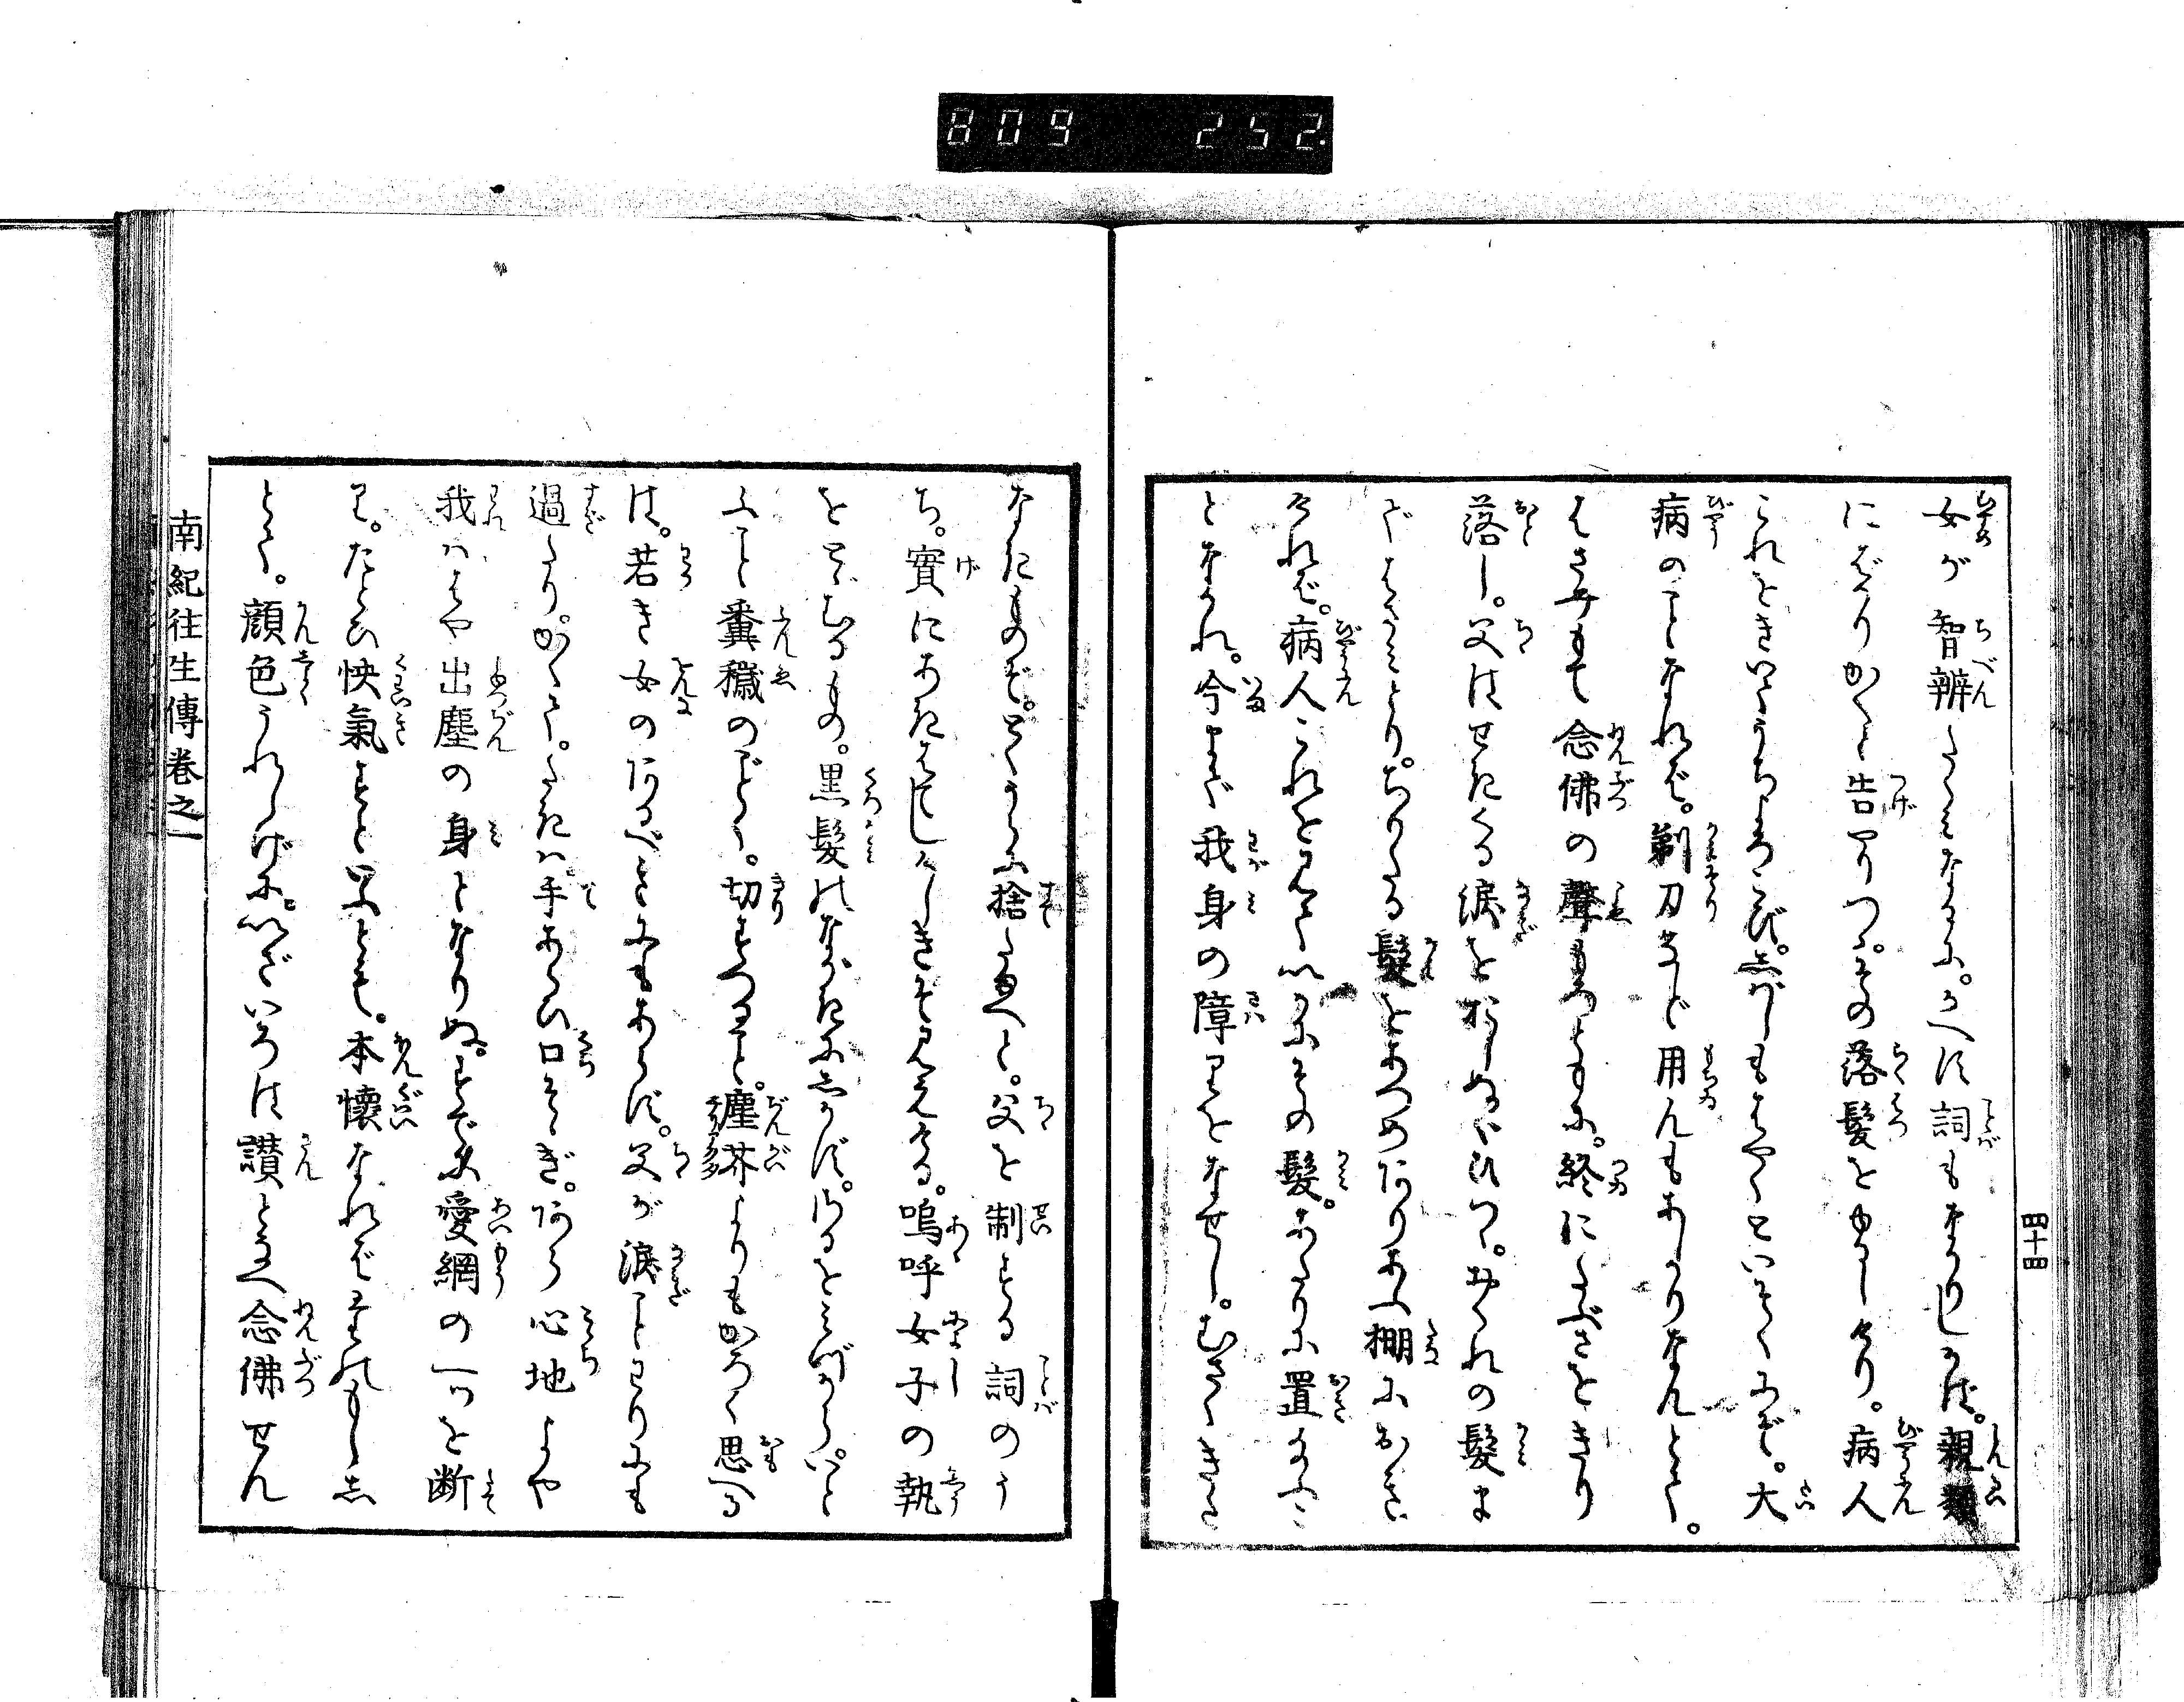 809 252.
女が智辨たくみなるに。かへす詞もなかりしかば。親類
にばかりかくと告やりつ。その落髪をゆるしけり。病人
これをきいてうちよろこび。しばしもはやくといそくにぞ。大
病のことなれば。剃刀など用んもあしかりなんとて。
はさみもて念佛の聲もろともに。終にたぶさをきり
落し。父はせたくる涙をおしぬぐひつゝ。おくれの髪ま
ではさみとり。ちりたる髪をあつめたりあふ棚におき
ければ。病人これを見ていかにその髪。あたりに置給ふこ
となかれ。今まで我身の障りをなせし。むさくきた
四十四
なきものぞ。とくとくに捨たまへと。父を制する詞のう
ち。實にあきはてしけしきぞ見えける。嗚呼女子の執
をとゞむるもの。黒髪のながきにしかず。しかるをみづから。いと
ふこと糞穢のごとく。切すつること。塵芥よりもかろく思へる
は。若き女のたるべきことにもあらず。父が涙ことわりにも
過たり。かくて。さきハ手あらひ口そゝぎ。たゞ心地よや
我ハはや出塵の身となりぬ。すでに愛網の一ツを断
り。たとひ快氣すといふとも。本懐なればそのもくし
とて。顔色うれしげに。いざいろは讃となへ念佛せん
南紀往生傳巻之一